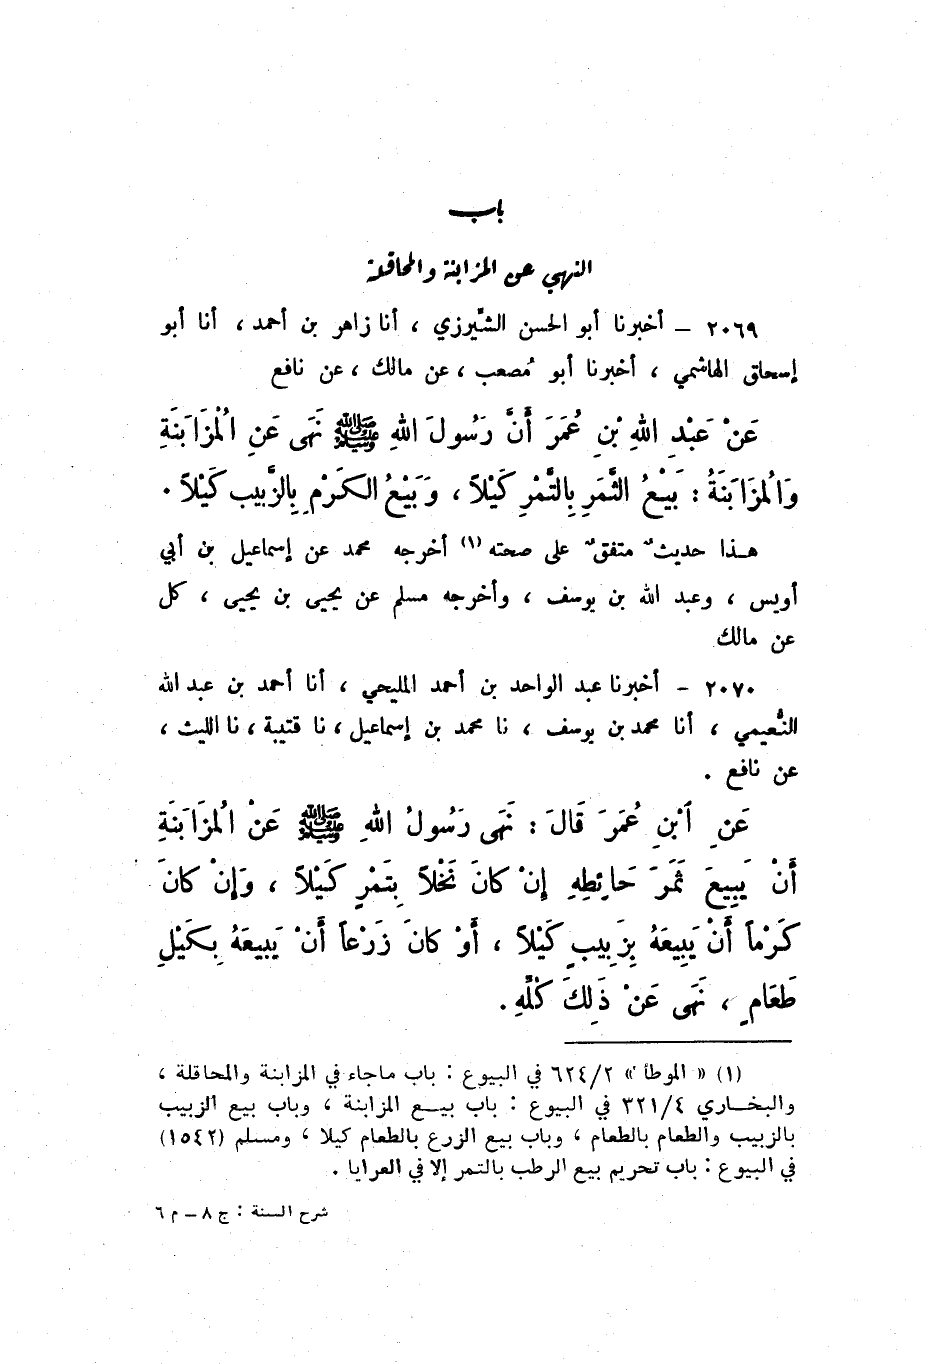 باب
النهي عن المزابنة والمحاقلة
٢٠٦٩ – أخبرنا أبو الحسن الشِّيرزي ، أنا زاهر بن أحمد ، أنا أبو
إسحاق الهاشمي ، أخبرنا أبو مُصعب ، عن مالك ، عن نافع
عَنْ عَبْدِ اللهِ بْنِ عُمَرَ أَنَّ رَسُولَ اللهِ ﷺ نَهَى عَنِ الْمُزَابَنَةِ
وَالْمُزَابَنَةُ : بَيْعُ الثَّمَرِ بِالتَّمْرِ كَيْلاً ، وَبَيْعُ الكَرْمِ بِالزَّبيبِ كَيْلاً .
هـذا حديثٌ متفقٌ على صحته (١) أخرجه محمد عن إسماعيل بن أبي
أويس ، وعبد الله بن يوسف ، وأخرجه مسلم عن يحيى بن يحيى ، كل
عن مالك
٢٠٧٠ – أخبرنا عبد الواحد بن أحمد المليحي ، أنا أحمد بن عبد الله
النُّعيمي ، أنا محمد بن يوسف ، نا محمد بن إسماعيل ، نا قتيبة ، نا الليث ،
عن نافع .
عَنِ ابْنِ عُمَرَ قَالَ : نَهَى رَسُولُ اللهِ ﷺ عَنْ الْمُزَابَنَةِ
أَنْ يَبِيعَ ثَمَرَ حَائِطِهِ إِنْ كانَ نَخْلاً بِتَمْرٍ كَيْلاً ، وَإِنْ كانَ
كَرْماً أَنْ يَبِيعَهُ بِزَبِيبٍ كَيْلاً ، أَوْ كانَ زَرْعاً أَنْ يَبيعَهُ بِكَيْلِ
طَعَامٍ ، نَهَى عَنْ ذَلِكَ كُلِّهِ .
(١) « الموطأ » ٦٢٤/٢ في البيوع : باب ماجاء في المزابنة والمحاقلة ،
والبخــاري ٣٢١/٤ في البيوع : باب بيــع المزابنة ، وباب بيع الزبيب
بالزبيب والطعام بالطعام ، وباب بيع الزرع بالطعام كيلا ، ومسلم (١٥٤٢)
في البيوع : باب تحريم بيع الرطب بالتمر إلا في العرايا .
شرح السنة : ج ٨ – م ٦